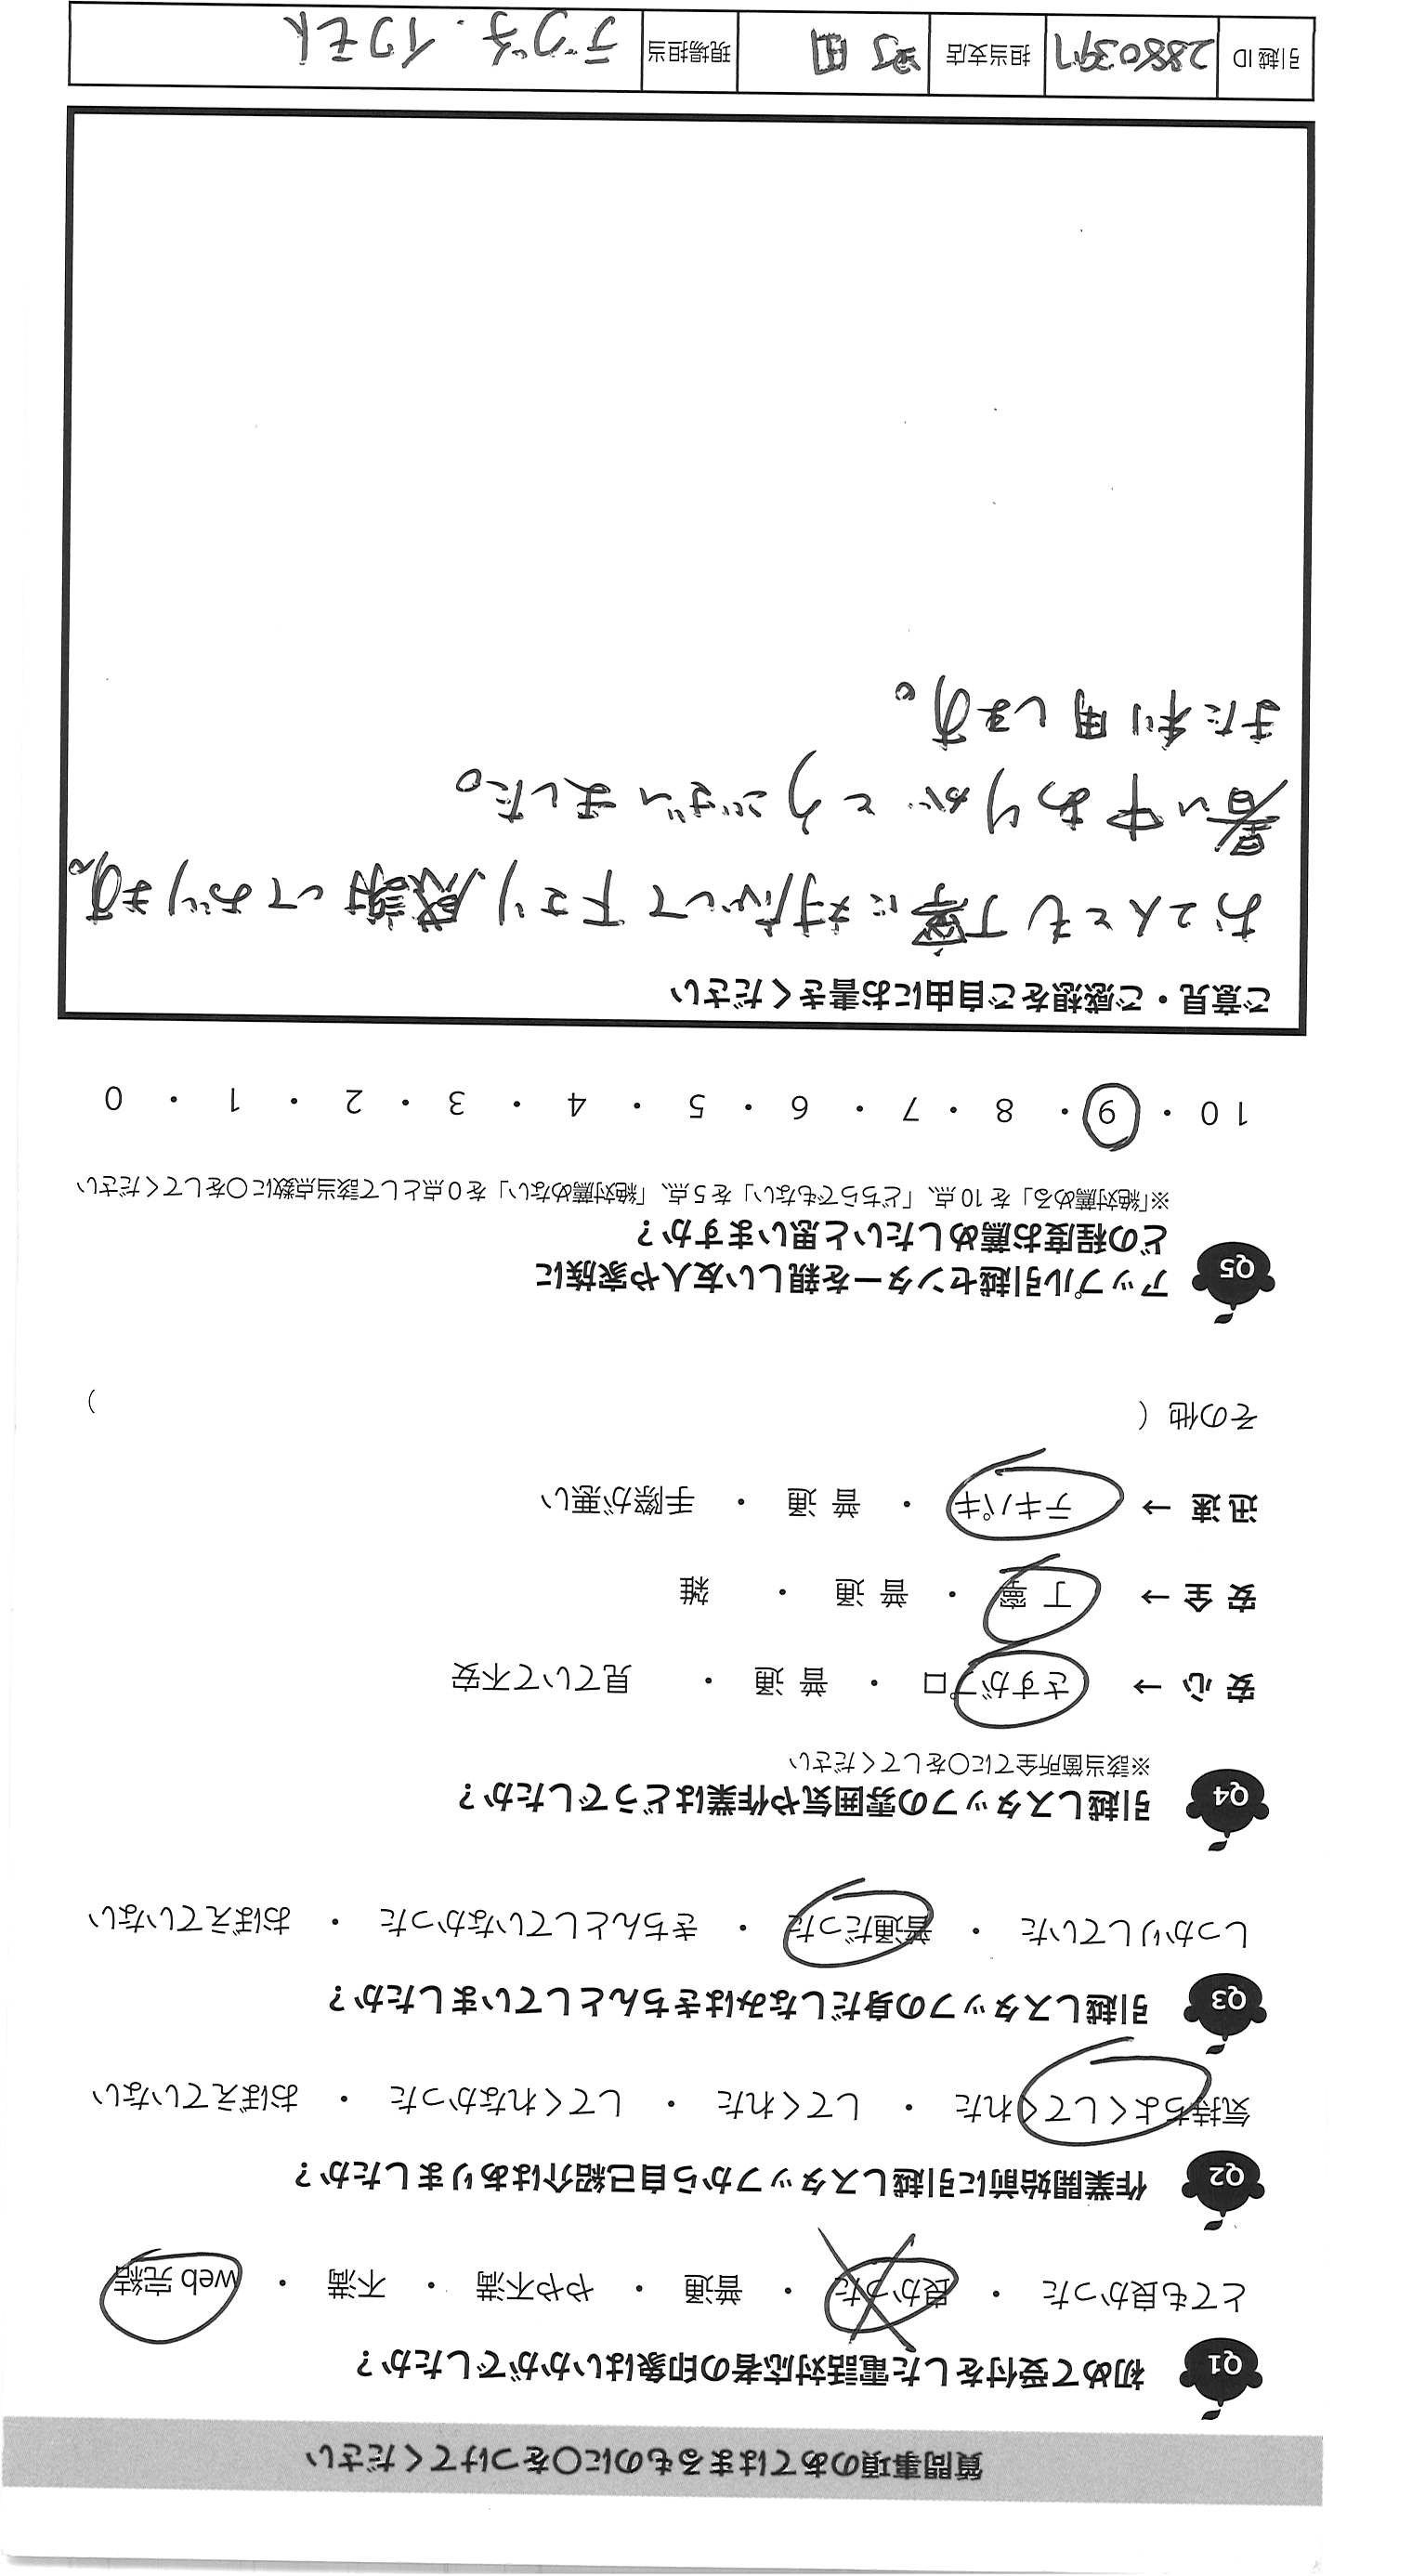 質問事項のあてはまるものに〇をつけてください
Q1 初めて受付をした電話対応者の印象はいかがでしたか？
とても良かった ・ 良かった ・ 普通 ・ やや不満 ・ 不満 ・ web 完結
Q2 作業開始前に引越しスタッフから自己紹介はありましたか？
気持ちよくしてくれた ・ してくれた ・ してくれなかった ・ おぼえていない
Q3 引越しスタッフの身だしなみはきちんとしていましたか？
しっかりしていた ・ 普通だった ・ きちんとしていなかった ・ おぼえていない
Q4 引越しスタッフの雰囲気や作業はどうでしたか？
※該当箇所全てに〇をしてください
安 心 → さすがプロ ・ 普 通 ・ 見ていて不安
安 全 → 丁 寧 ・ 普 通 ・ 雑
迅 速 → テキパキ ・ 普 通 ・ 手際が悪い
その他（ ）
Q5 アップル引越センターを親しい友人や家族に
どの程度お薦めしたいと思いますか？
※「絶対薦める」を 10 点、「どちらでもない」を 5 点、「絶対薦めない」を 0 点として該当点数に〇をしてください
10 ・ 9 ・ 8 ・ 7 ・ 6 ・ 5 ・ 4 ・ 3 ・ 2 ・ 1 ・ 0
ご意見・ご感想をご自由にお書きください
お2人とも丁寧に対応して下さり、感謝しております。
暑い中ありがとうございました。
また利用します。
引越 ID 2880397 担当支店 町田 現場担当